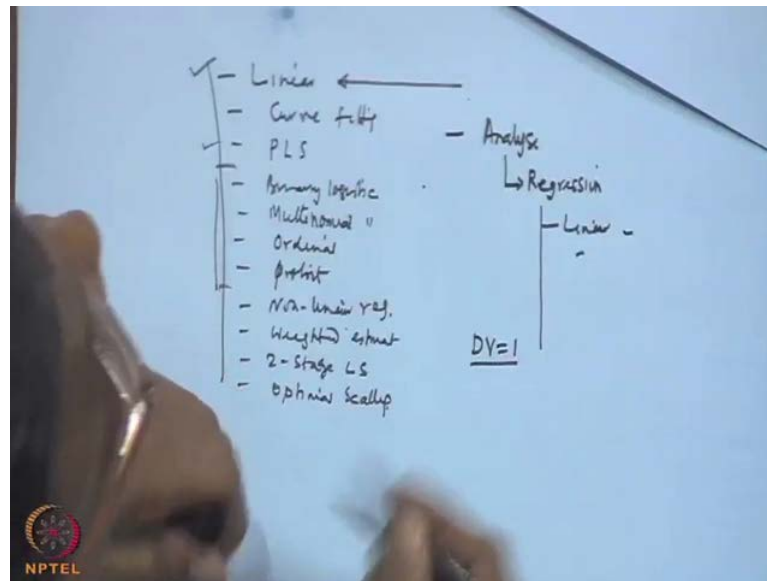 - Linear ←
- Curve fittig
- PLS
- Binary logistic
- Multinomial "
- Ordinal
- Probit
- Non-linear reg.
- Weighted estimat
- 2-Stage LS
- Optimal Scallig
- Analyse
↳ Regression
- Linear -
DV=1
NPTEL